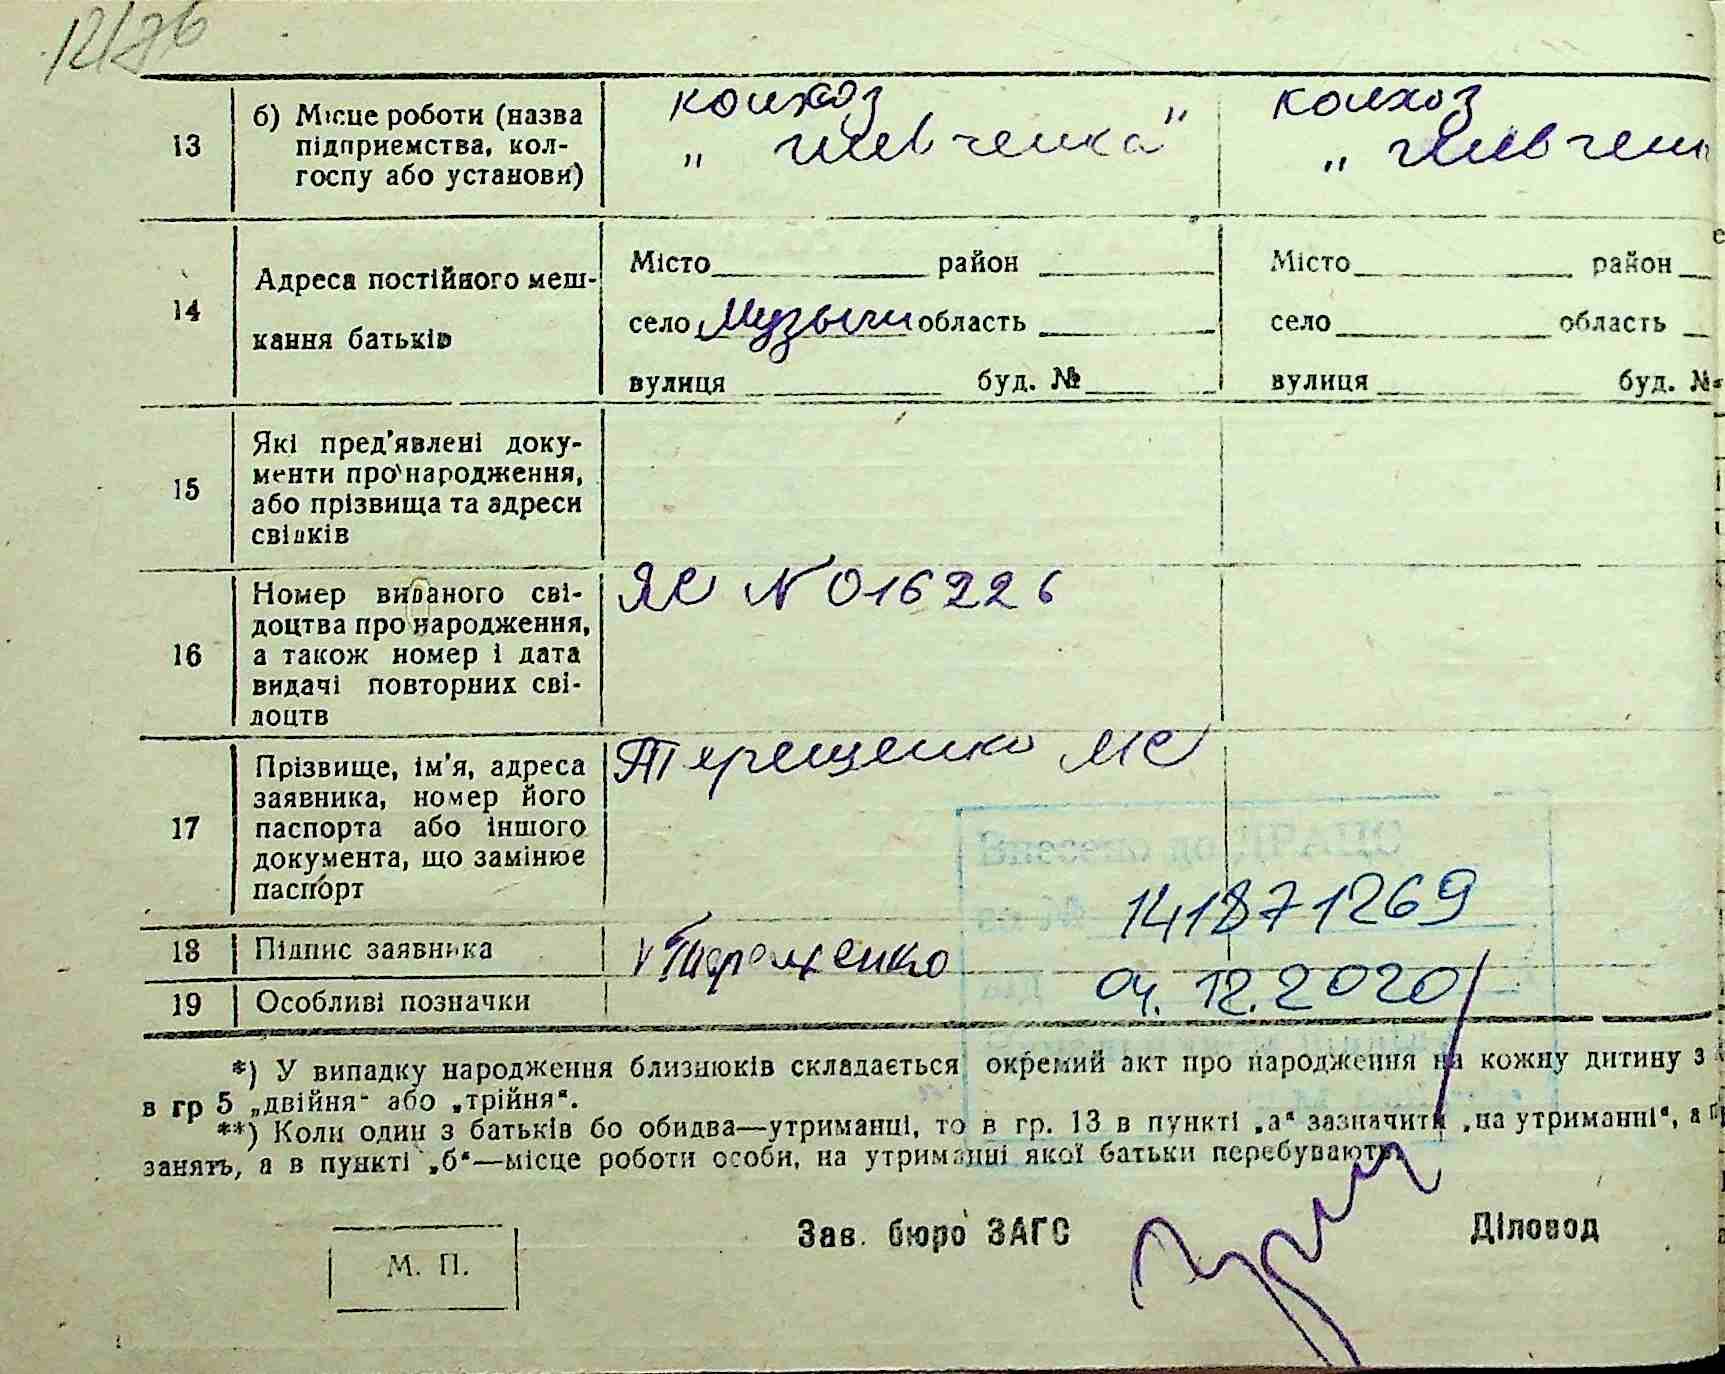 12/76
13
б) Місце роботи (назва
підприємства, кол-
госпу або установи)
колхоз
„ Шевченка"
колхоз
„ Шевчен
14
Адреса постійного меш-
кання батьків
Місто район
село Музычи область
вулиця буд. №
Місто район
село область
вулиця буд. №
15
Які пред'явлені доку-
менти про народження,
або прізвища та адреси
свідків
16
Номер виданого сві-
доцтва про народження,
а також номер і дата
видачі повторних сві-
доцтв
ЯС N 016226
17
Прізвище, ім'я, адреса
заявника, номер його
паспорта або іншого
документа, що замінює
паспорт
Терещенко МС
Внесено до ДРАЦС
за № 141871269
Дата 04.12.2020
18
Підпис заявника
Терещенко
19
Особливі позначки
*) У випадку народження близнюків складається окремий акт про народження на кожну дитину з
в гр 5 „двійня" або „трійня".
**) Коли один з батьків бо обидва—утриманці, то в гр. 13 в пункті „а" зазначити „на утриманні", а
занять, а в пункті „б"—місце роботи особи, на утриманні якої батьки перебувають.
М. П.
Зав. бюро ЗАГС
Діловод